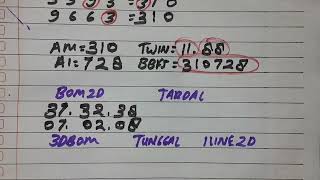 9663=310
AM=310 TWIN=11.88
AI=728 BBFS=310728
BOM2D TARDAL
37.32.38
07.02.08
3DBOM TUNGGAL 1LINE2D